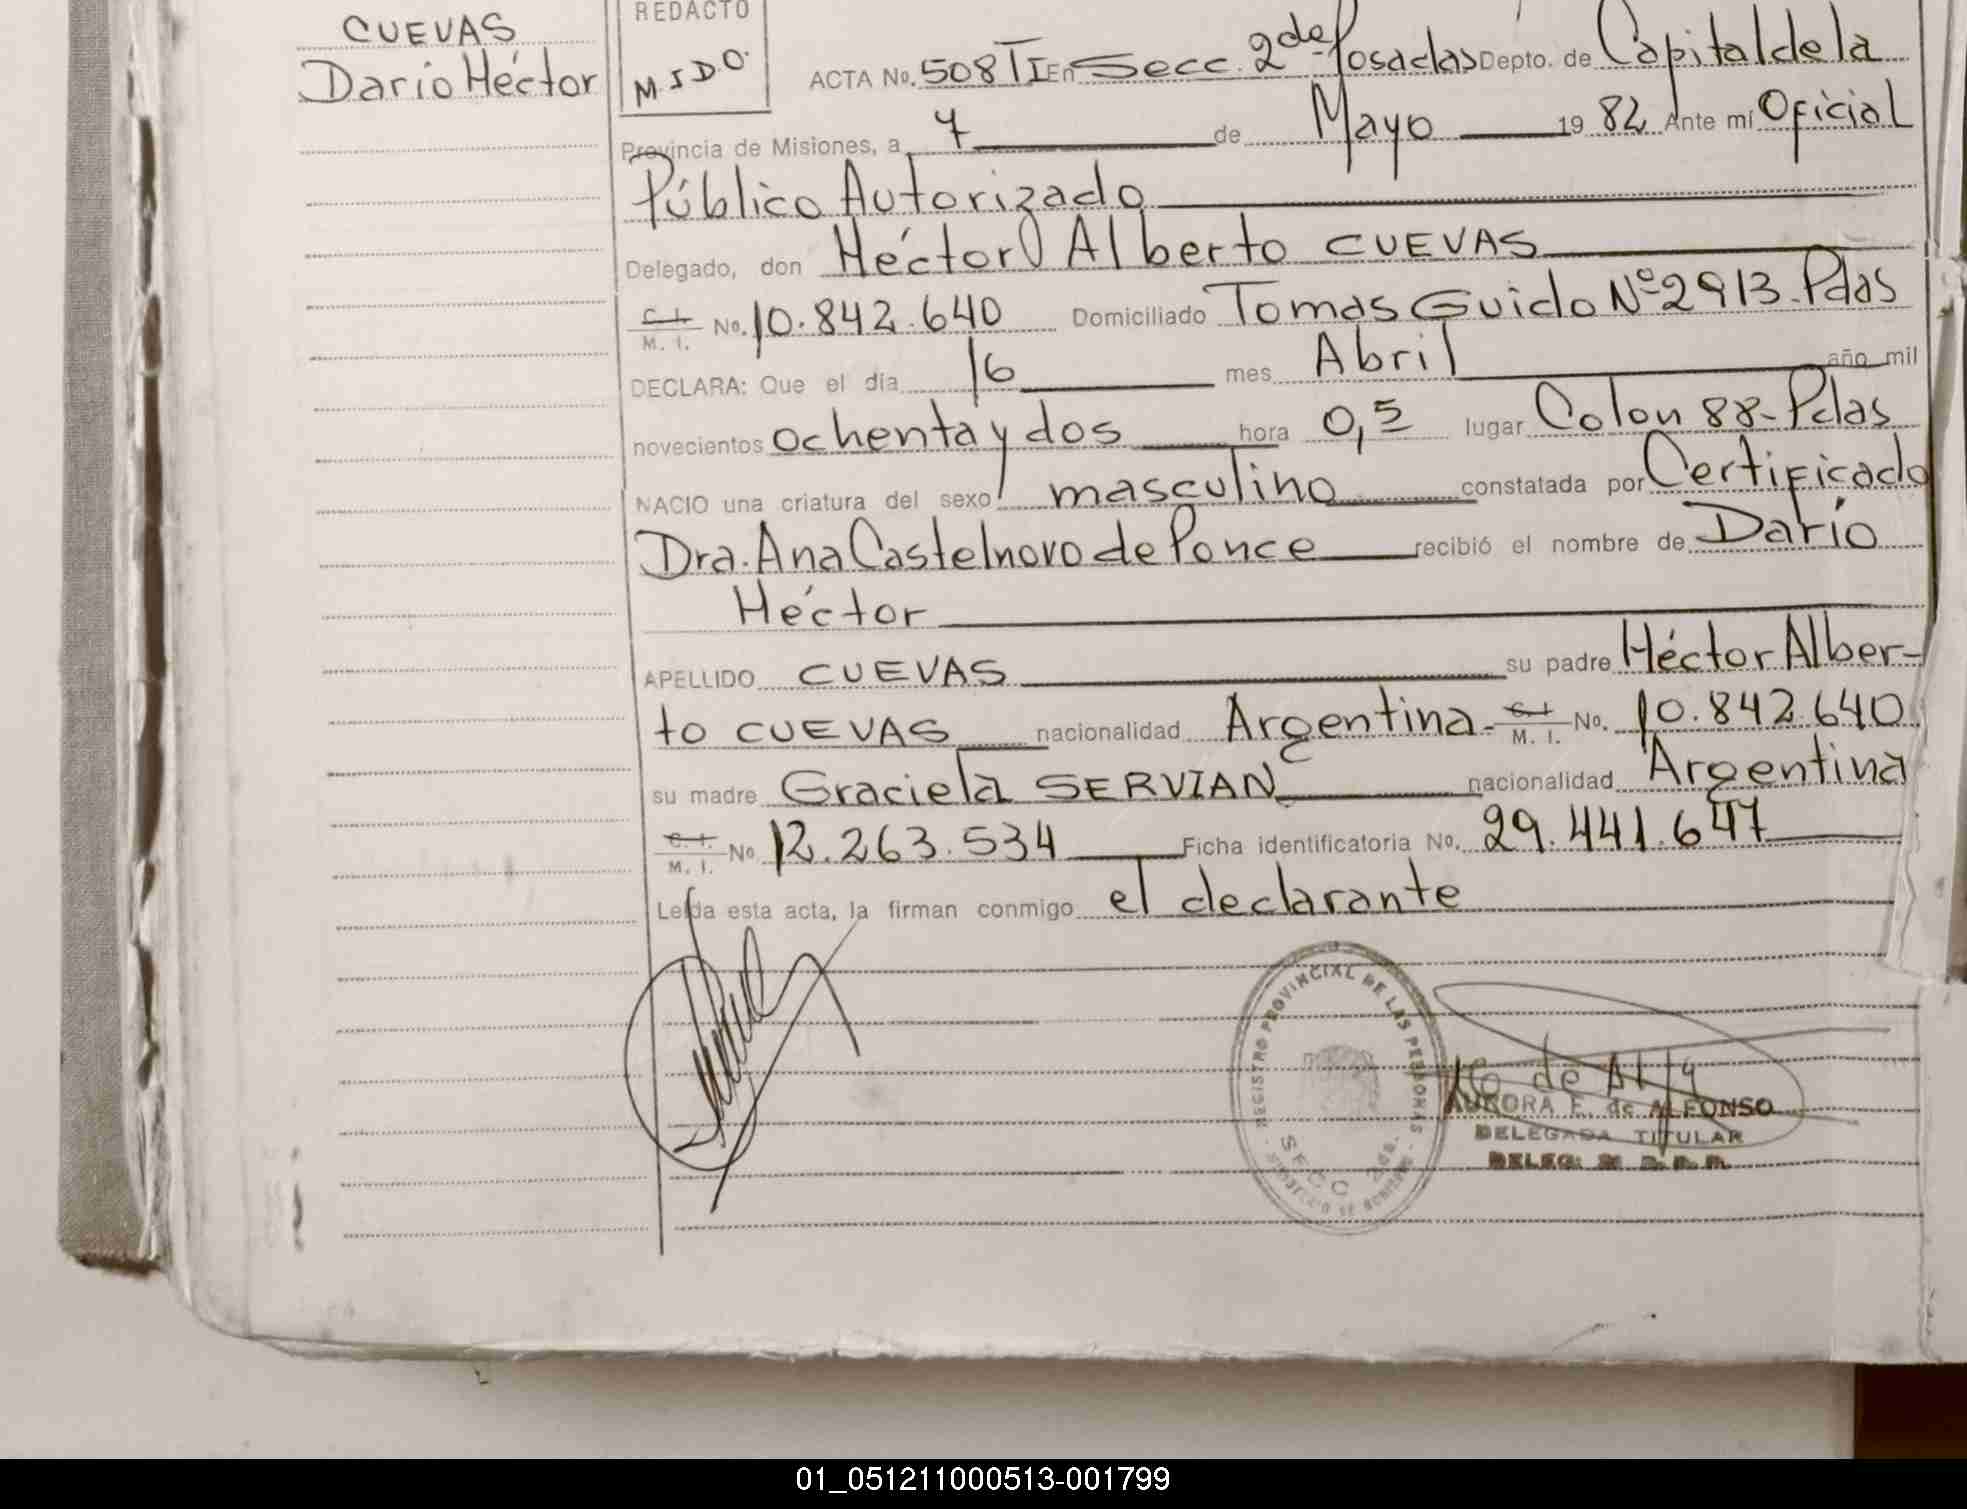 CUEVAS
Darío Héctor
REDACTO
M.S.D.O.
ACTA No. 508 T I En Secc. 2da Posadas Depto. de Capital de la
Provincia de Misiones, a 7 de Mayo 19 82 Ante mí Oficial
Público Autorizado
Delegado, don Héctor Alberto CUEVAS
C. I. M. I. No. 10.842.640 Domiciliado Tomas Guido Nº 2913-Pdas
DECLARA: Que el día 16 mes Abril año mil
novecientos ochenta y dos hora 0,5 lugar Colon 88-Pdas
NACIO una criatura del sexo masculino constatada por Certificado
Dra. Ana Castelnovo de Ponce recibió el nombre de Darío
Héctor
APELLIDO CUEVAS su padre Héctor Alber-
to CUEVAS nacionalidad Argentina - C. I. M. I. No. 10.842.640
su madre Graciela SERVIAN nacionalidad Argentina
C. I. M. I. No 12.263.534 Ficha identificatoria No. 29.441.647
Leída esta acta, la firman conmigo el declarante
REGISTRO PROVINCIAL DE LAS PERSONAS
SECC 2da.
AURORA F. de ALFONSO
DELEGADA TITULAR
01_051211000513-001799